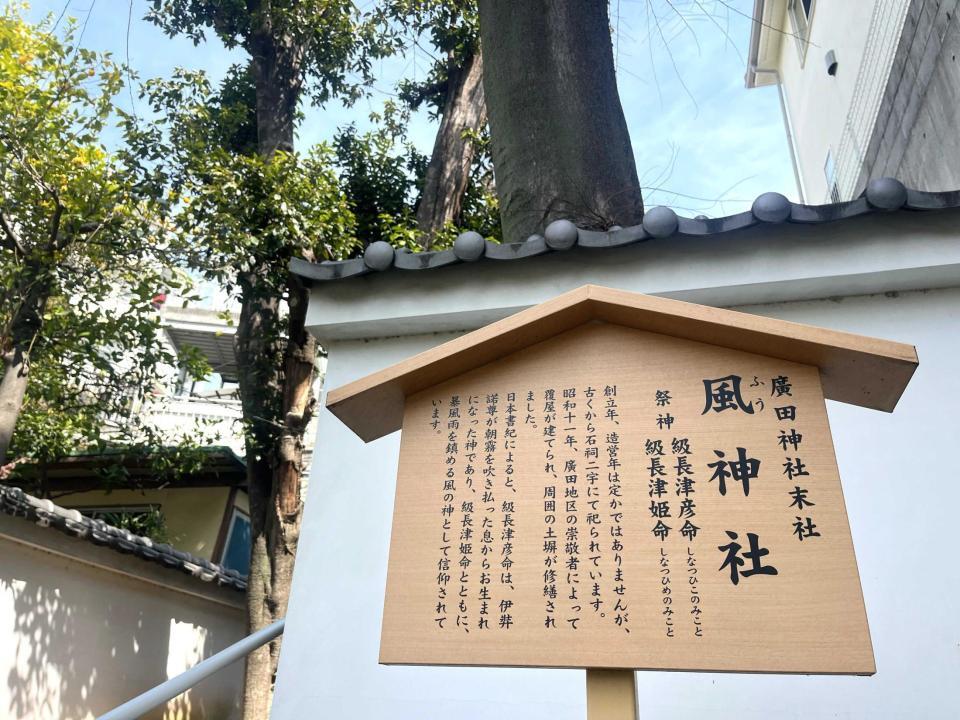 廣田神社末社
ふう
風神社
祭神
級長津彦命 しなつひこのみこと
級長津姫命 しなつひめのみこと
創立年、造営年は定かではありませんが、
古くから石祠二宇にて祀られています。
昭和十一年、廣田地区の崇敬者によって
覆屋が建てられ、周囲の土塀が修繕され
ました。
日本書紀によると、級長津彦命は、伊弉
諾尊が朝霧を吹き払った息からお生まれ
になった神であり、級長津姫命とともに、
暴風雨を鎮める風の神として信仰されて
います。